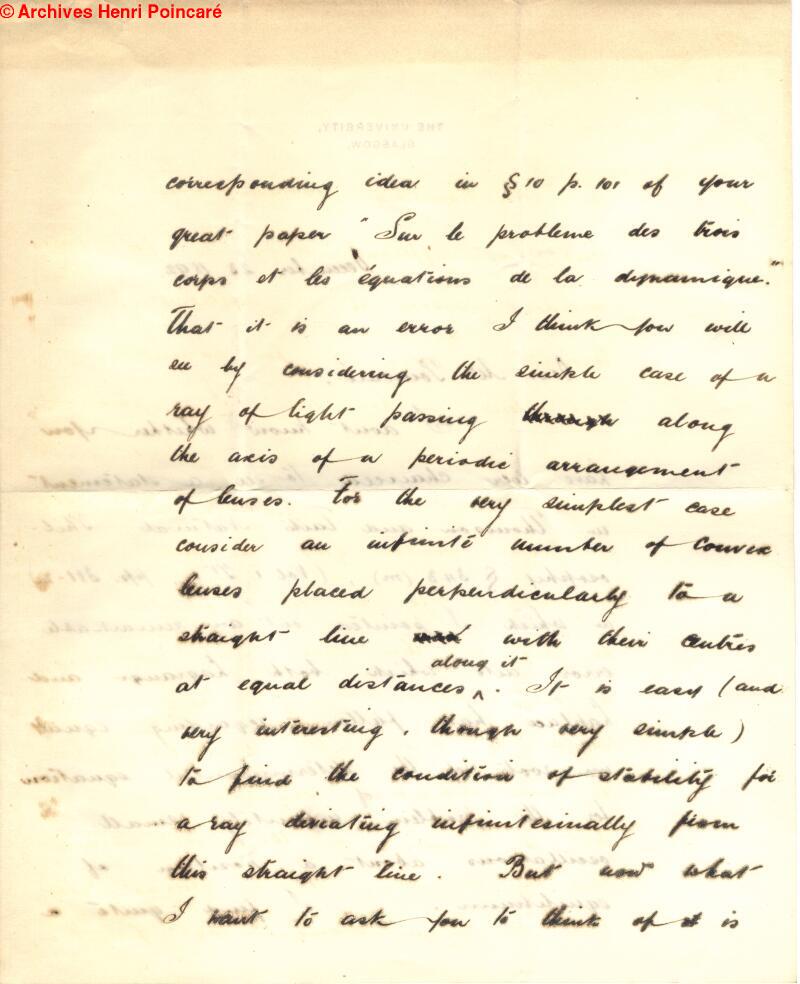 © Archives Henri Poincaré
THE UNIVERSITY,
GLASGOW.
corresponding idea in § 10 p. 101 of your
great paper "Sur le probleme des trois
corps et les équations de la dynamique."
That it is an error I think you will
see by considering the simple case of a
ray of light passing through along
the axis of a periodic arrangement
of lenses. For the very simplest case
consider an infinite number of convex
lenses placed perpendicularly to a
straight line with their centres
along it
at equal distances ^. It is easy (and
very interesting, though very simple)
to find the condition of stability for
a ray deviating infinitesinally from
this straight line. But now what
I want to ask you to think of is